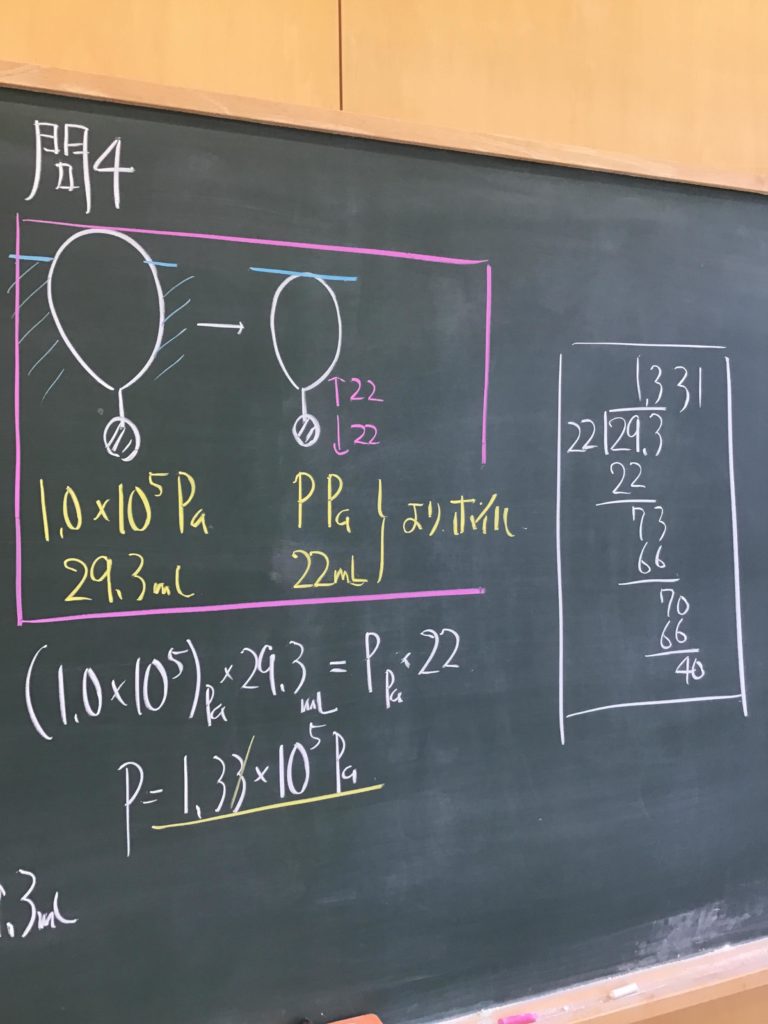 問4
↑22
↓22
1.0×10⁵Pa
29.3mL
P Pa
22mL
よりボイル
(1.0×10⁵)Pa×29.3mL=P Pa×22
P=1.33×10⁵Pa
.3mL
1.331
22 29.3
22
73
66
70
66
40